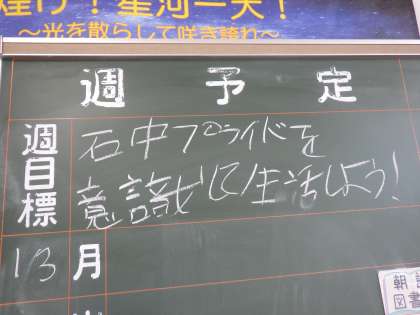 煌け！星河一天！
～光を散らして咲き誇れ～
週予定
週目標
石中プライドを
意識して生活しよう！
13月
朝読
図書